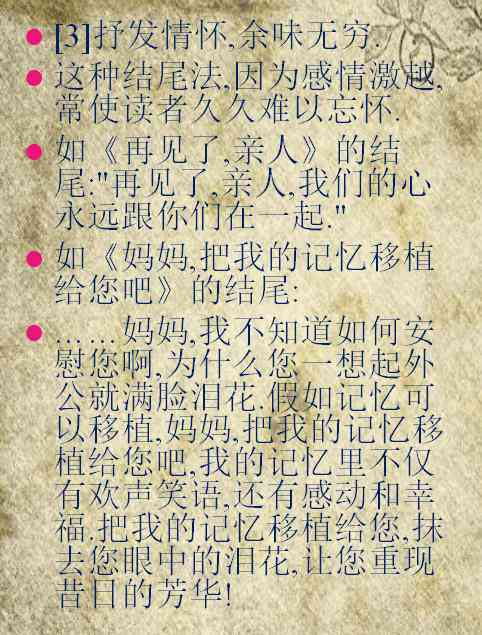 [3]抒发情怀,余味无穷.
这种结尾法,因为感情激越,
常使读者久久难以忘怀.
如《再见了,亲人》的结
尾:"再见了,亲人,我们的心
永远跟你们在一起."
如《妈妈,把我的记忆移植
给您吧》的结尾:
……妈妈,我不知道如何安
慰您啊,为什么您一想起外
公就满脸泪花.假如记忆可
以移植,妈妈,把我的记忆移
植给您吧,我的记忆里不仅
有欢声笑语,还有感动和幸
福.把我的记忆移植给您,抹
去您眼中的泪花,让您重现
昔日的芳华!